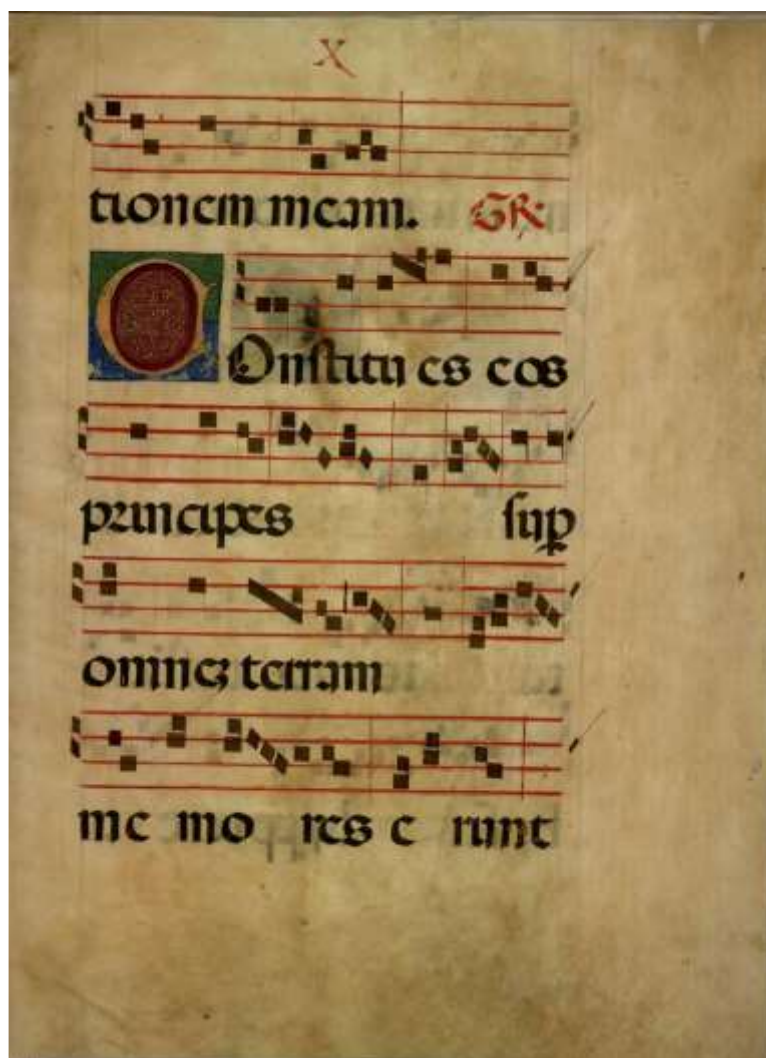 X
tionem meam. GR
COnstitu es eos
principes sup
omnez terram
me mo res e runt